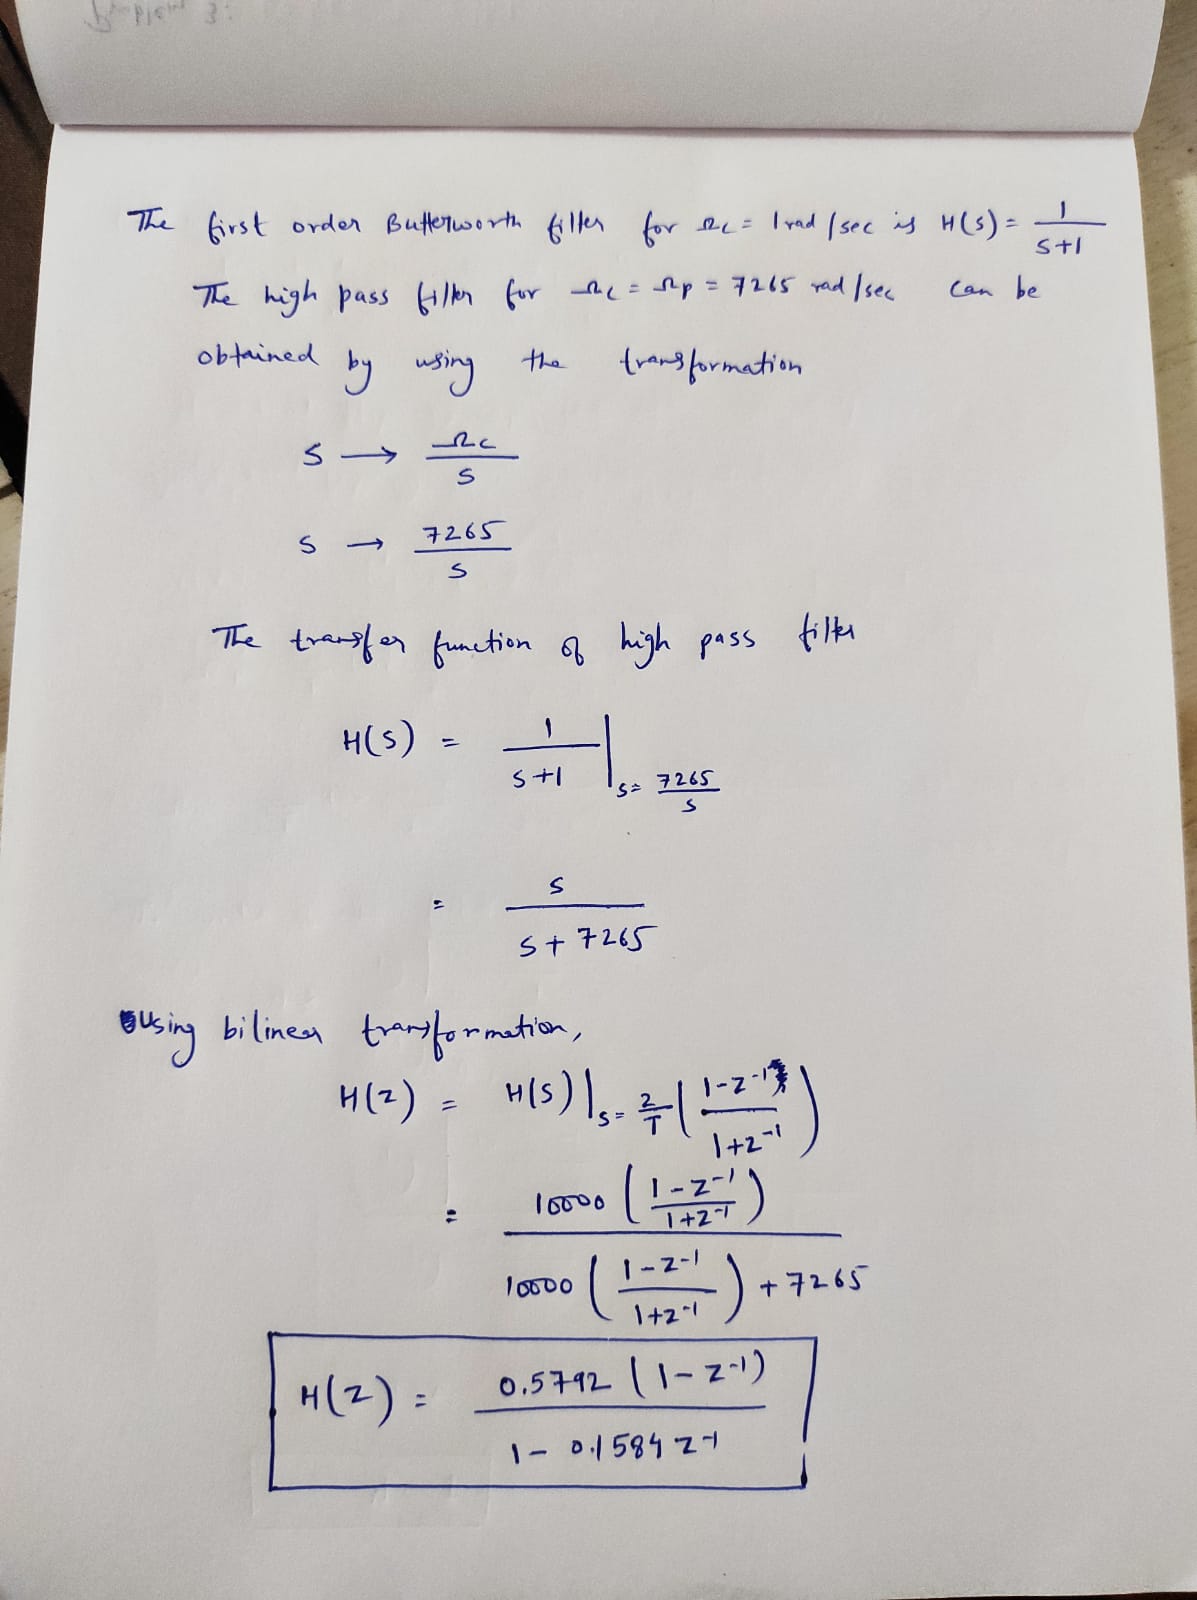 Problem 3:
The first order Butterworth filter for Ωc = 1 rad/sec is H(s) = 1/(s+1)
The high pass filter for Ωc = Ωp = 7265 rad/sec can be
obtained by using the transformation
s → Ωc/s
s → 7265/s
The transfer function of high pass filter
H(s) = 1/(s+1) |s= 7265/s
= s/(s + 7265)
Using bilinear transformation,
H(z) = H(s)|s= 2/T ((1-z^-1)/(1+z^-1))
= 10000 ((1-z^-1)/(1+z^-1)) / (10000 ((1-z^-1)/(1+z^-1)) + 7265)
H(z) = 0.5792 (1-z^-1) / (1 - 0.1584 z^-1)